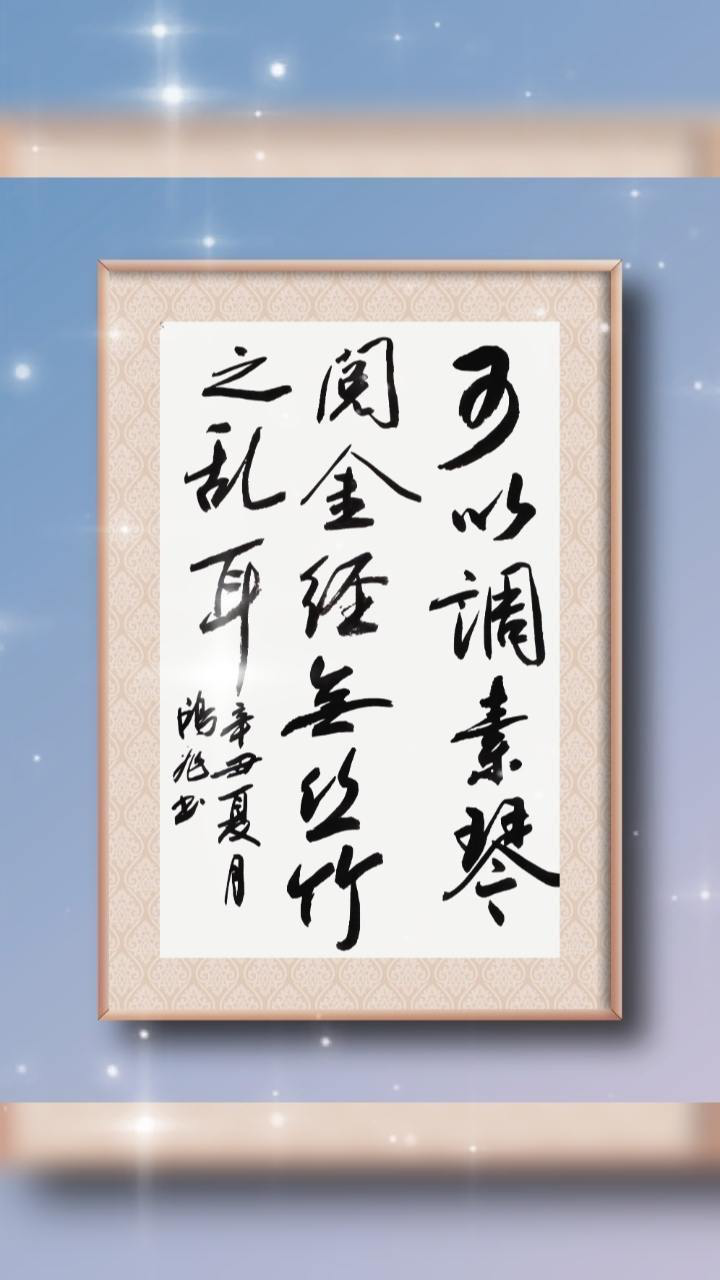 可以調素琴
閱金經無丝竹
之乱耳
辛丑夏月
鴻彪书